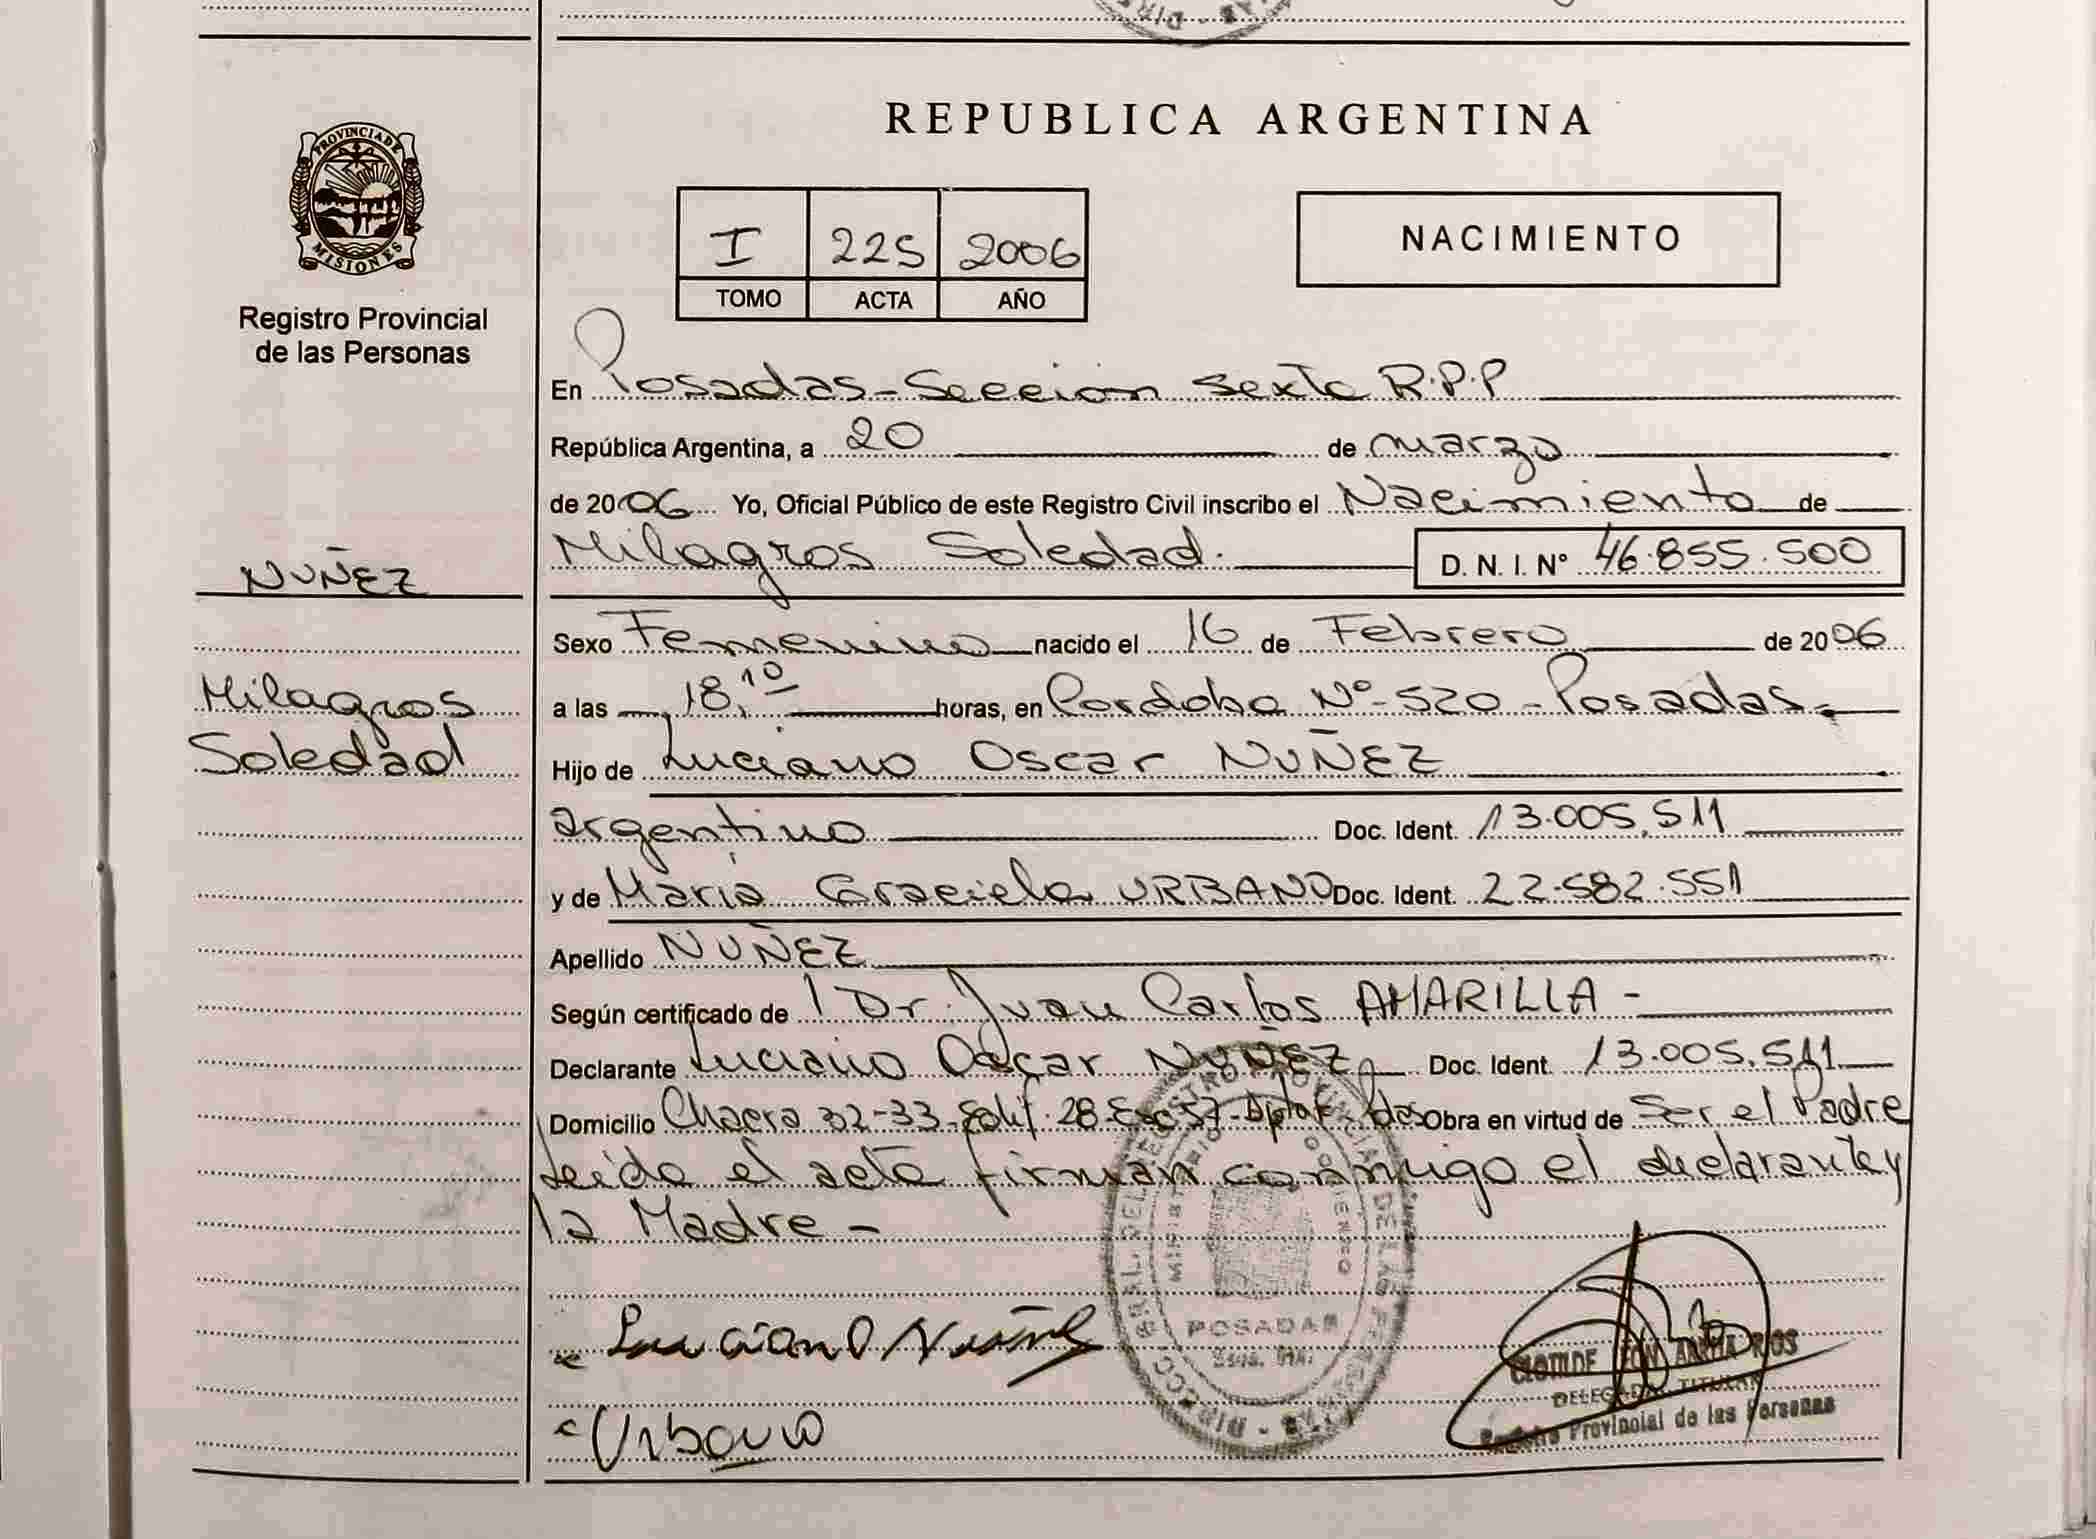 REPUBLICA ARGENTINA
PROVINCIA DE
MISIONES
Registro Provincial
de las Personas
I 225 2006
TOMO ACTA AÑO
NACIMIENTO
En Posadas-Seccion Sexta R.P.P
República Argentina, a 20 de marzo
de 2006 Yo, Oficial Público de este Registro Civil inscribo el Nacimiento de
NUÑEZ
Milagros Soledad. D. N. I. N° 46.855.500
Sexo Femenino nacido el 16 de Febrero de 2006
Milagros
Soledad
a las 18,10 horas, en Cordoba N°-520-Posadas
Hijo de Luciano Oscar NUÑEZ
argentino Doc. Ident. 13.005.511
y de María Graciela URBANO Doc. Ident. 22.582.551
Apellido NUÑEZ
Según certificado de Dr. Juan Carlos AMARILLA -
Declarante Luciano Oscar NUÑEZ Doc. Ident. 13.005.511
Domicilio Chacra 32-33-Edif. 28-Esc 57- Obra en virtud de Ser el Padre
Leida el acta firman conmigo el declarante y
la Madre -
Luciano Nuñez
Urbano
POSADAS
CLOTILDE RIOS
DELEGADA TITULAR
Registro Provincial de las Personas